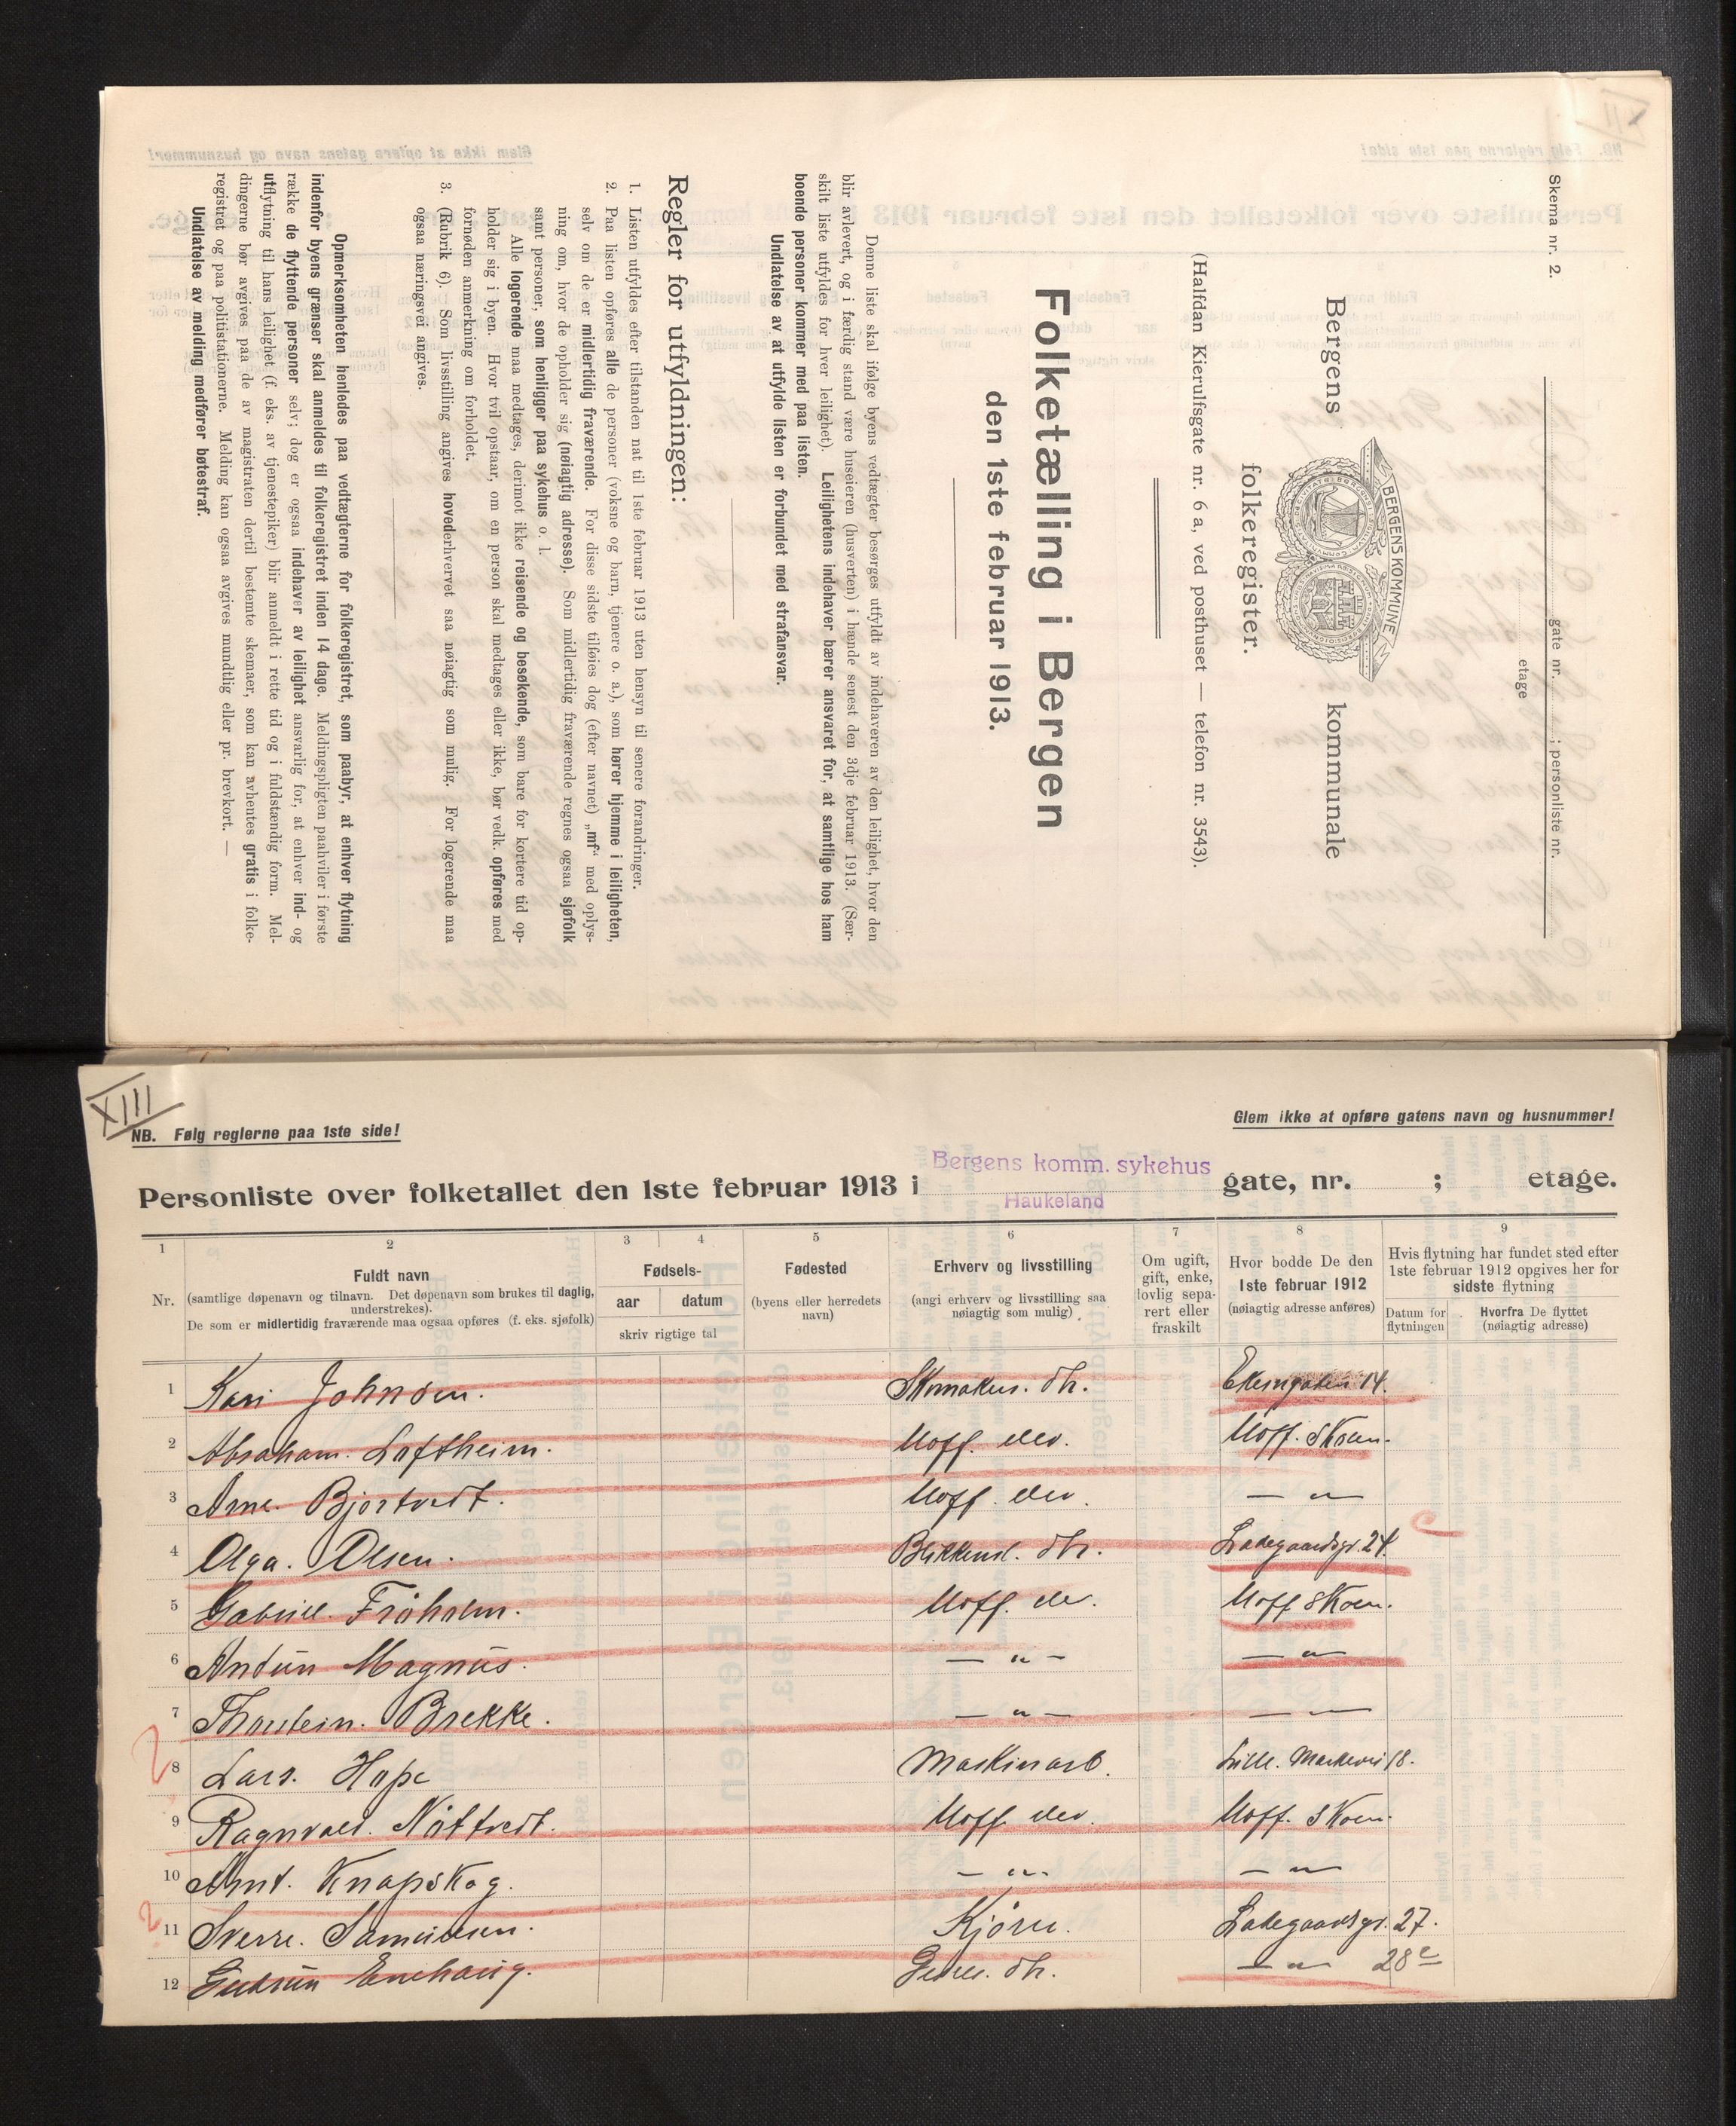 Skema nr. 2.
gate nr. i personliste nr.
etage
Bergens kommunale
BERGENS KOMMUNE
folkeregister.
(Halfdan Kierulfsgate nr. 6 a, ved posthuset — telefon nr. 3543).
Folketælling i Bergen
den 1ste februar 1913.
Denne liste skal ifølge byens vedtægter besørges utfyldt av indehaveren av den leilighet, hvor den
blir avlevert, og i færdig stand være huseieren (husverten) i hænde senest den 3dje februar 1913. (Sær-
skilt liste utfyldes for hver leilighet). Leilighetens indehaver bærer ansvaret for, at samtlige hos ham
boende personer kommer med paa listen.
Undlatelse av at utfylde listen er forbundet med strafansvar.
Regler for utfyldningen:
1. Listen utfyldes efter tilstanden nat til 1ste februar 1913 uten hensyn til senere forandringer.
2. Paa listen opføres alle de personer (voksne og barn, tjenere o. a.), som hører hjemme i leiligheten,
selv om de er midlertidig fraværende. For disse sidste tilføies dog (efter navnet) „mf“ med oplys-
ning om, hvor de opholder sig (nøiagtig adresse). Som midlertidig fraværende regnes ogsaa sjøfolk
samt personer, som henligger paa sykehus o. l.
Alle logerende maa medtages, derimot ikke reisende og besøkende, som bare for kortere tid op-
holder sig i byen. Hvor tvil opstaar, om en person skal medtages eller ikke, bør vedk. opføres med
fornøden anmerkning om forholdet.
3. (Rubrik 6). Som livsstilling angives hovederhvervet saa nøiagtig som mulig. For logerende maa
ogsaa næringsvei angives.
Opmerksomheten henledes paa vedtægterne for folkeregistret, som paabyr, at enhver flytning
indenfor byens grænser skal anmeldes til folkeregistret inden 14 dage. Meldingspligten paahviler i første
række de flyttende personer selv; dog er ogsaa indehaver av leilighet ansvarlig for, at enhver ind- og
utflytning til hans leilighet (f. eks. av tjenestepiker) blir anmeldt i rette tid og i fuldstændig form. Mel-
dingerne bør avgives paa de av magistraten dertil bestemte skemaer, som kan avhentes gratis i folke-
registret og paa politistationerne. Melding kan ogsaa avgives mundtlig eller pr. brevkort. —
Undlatelse av melding medfører bøtestraf.
XIII
NB. Følg reglerne paa 1ste side!
Glem ikke at opføre gatens navn og husnummer!
Personliste over folketallet den 1ste februar 1913 i Bergens komm. sykehus gate, nr. ; etage.
Haukeland
1 2 3 4 5 6 7 8 9
Nr.
Fuldt navn
(samtlige døpenavn og tilnavn. Det døpenavn som brukes til daglig,
understrekes).
De som er midlertidig fraværende maa ogsaa opføres (f. eks. sjøfolk)
Fødsels-
aar datum
skriv rigtige tal
Fødested
(byens eller herredets
navn)
Erhverv og livsstilling
(angi erhverv og livsstilling saa
nøiagtig som mulig)
Om ugift,
gift, enke,
lovlig sepa-
rert eller
fraskilt
Hvor bodde De den
1ste februar 1912
(nøiagtig adresse anføres)
Hvis flytning har fundet sted efter
1ste februar 1912 opgives her for
sidste flytning
Datum for
flytningen
Hvorfra De flyttet
(nøiagtig adresse)
1 Kari Johnsen. Skomakers. dtr. 14.
2 Abraham. Loftheim. Uoff. elev. Uoff. Skolen.
3 Arne. Bjortvedt. Uoff. elev. — " —
4 Olga. Olsen. Blikkensl. dtr. Ladegaardsgt. 24.
5 Gabriel. Fröholm. Uoff. elev. Uoff Skolen.
6 Antun Magnus. — " — — " —
7 Thorstein. Brekke. — " — — —
8 Lars. Hope Maskinarb. Lille. Markevei 18.
9 Ragnvald. Nöttvedt. Uoff elev. Uoff. Skolen.
10 Arnt. Knapskog. — " — — " —
11 Sverre. Samuelsen. Kjöre. Ladegaardsgt. 27.
12 Gudrun Enehaug. dtr. — " — 28e